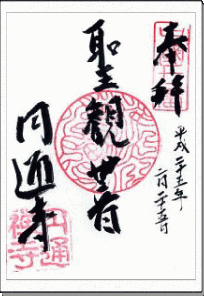 奉拝
平成二十三年
二月二十五日
聖観世音
円通寺
円通禅寺